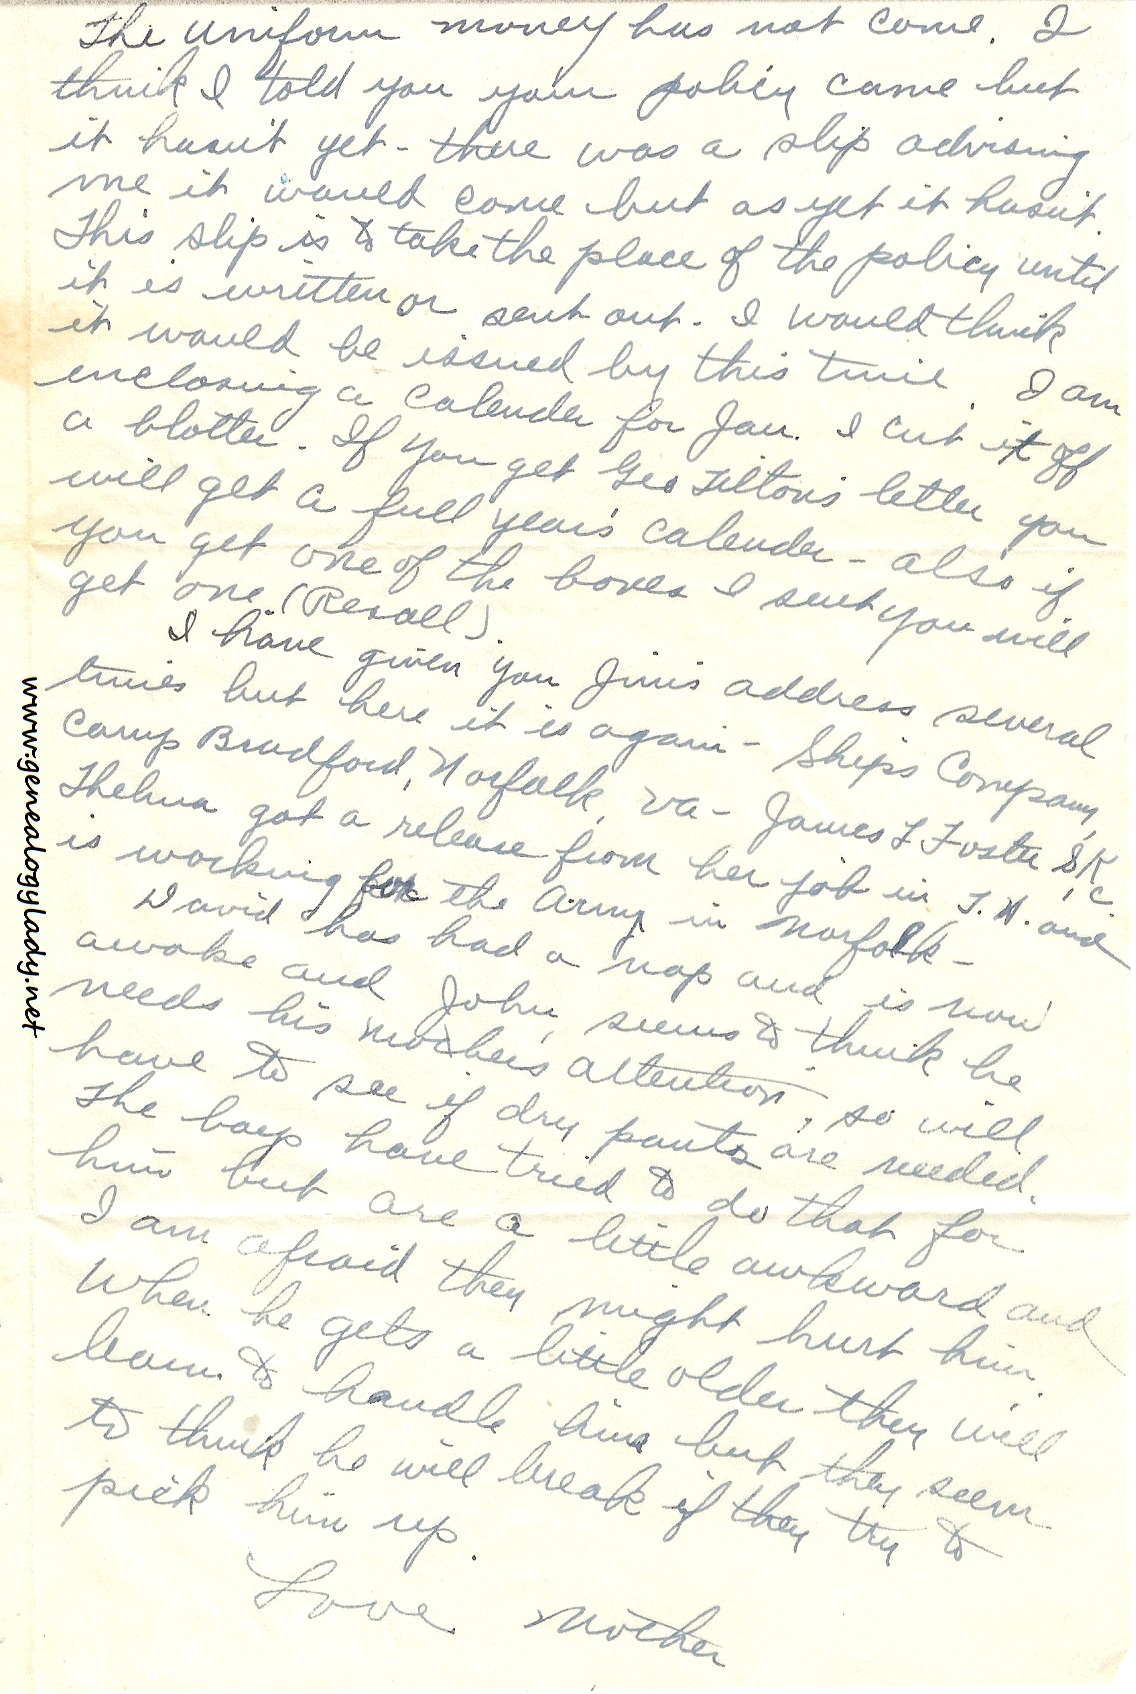 The uniform money has not come. I
think I told you your policy came but
it hasn't yet - there was a slip advising
me it would come but as yet it hasn't.
This slip is to take the place of the policy until
it is written or sent out. I would think
it would be issued by this time. I am
enclosing a calender for Jan. I cut it off
a blotter. If you get Geo Tilton's letter you
will get a full year's calender - also if
you get one of the boxes I sent you will
get one (Rexall).
I have given you Jim's address several
times but here it is again - Ships Company,
Camp Bradford, Norfolk, Va - James L Foster SK
1/c.
Thelma got a release from her job in T.H. and
is working for the Army in Norfolk -
David has had a nap and is now
awake and John seems to think he
needs his mother's attention, so will
have to see if dry pants are needed.
The boys have tried to do that for
him but are a little awkward and
I am afraid they might hurt him.
When he gets a little older they will
learn to handle him but they seem
to think he will break if they try to
pick him up.
Love Mother
www.genealogylady.net